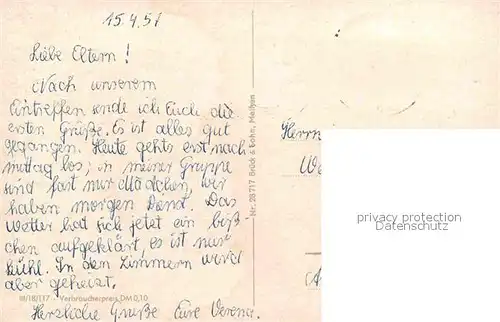 15.4.57
Liebe Eltern!
Nach unserem
Eintreffen sende ich Euch die
ersten Grüße. Es ist alles gut
gegangen. Heute gehts erst nach
mittag los; in meiner Gruppe
sind fast nur Mädchen, wir
haben morgen Dienst. Das
Wetter hat sich jetzt ein biß-
chen aufgeklärt, es ist nur
kühl. In den Zimmern wird
aber geheizt.
III/18/117 - Verbraucherpreis DM 0,10
Herzliche Grüße Eure Verena.
Nr. 28717 Brück & Sohn, Meißen
Herrn
privacy protection
Datenschutz